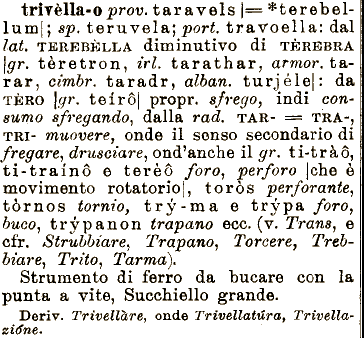 trivèlla-o prov. taravels |= *terebel-
lum|; sp. teruvela; port. travoella: dal
lat. TEREBÈLLA diminutivo di TÈREBRA
|gr. tèretron, irl. tarathar, armor. ta-
rar, cimbr. taradr, alban. turjéle|: da
TÈRO |gr. teírô| propr. sfrego, indi con
sumo sfregando, dalla rad. TAR- = TRA-,
TRI- muovere, onde il senso secondario di
fregare, drusciare, ond'anche il gr. ti-tràô,
ti-traínô e terèô foro, perforo |che è
movimento rotatorio|, toròs perforante,
tòrnos tornio, trý-ma e trýpa foro,
buco, trýpanon trapano ecc. (v. Trans, e
cfr. Strubbiare, Trapano, Torcere, Treb-
biare, Trito, Tarma).
Strumento di ferro da bucare con la
punta a vite, Succhiello grande.
Deriv. Trivellàre, onde Trivellatúra, Trivella-
zióne.